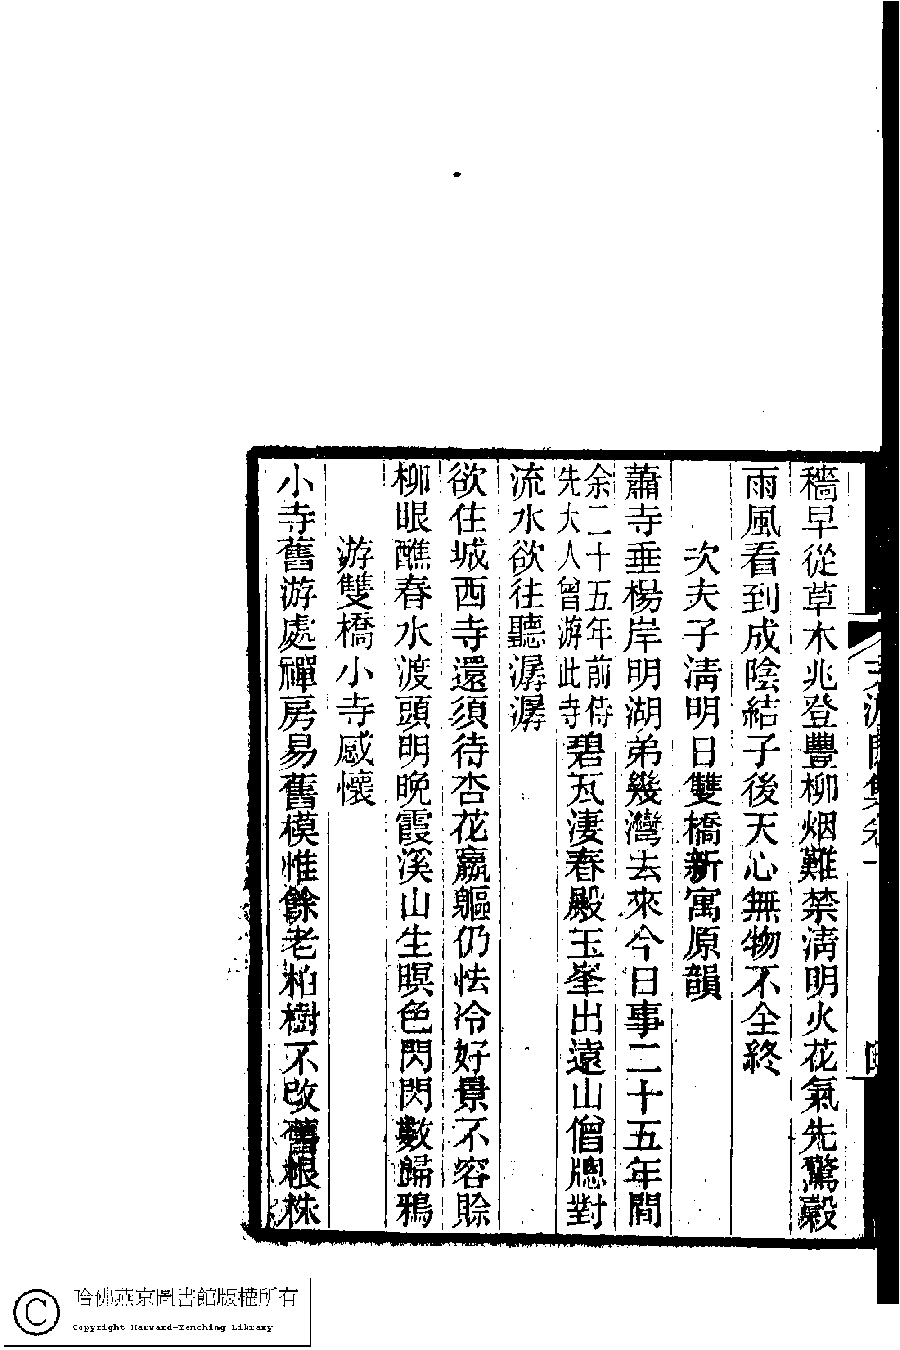 穡早從草木兆登豐柳烟難禁淸明火花氣先驚穀
雨風看到成陰結子後天心無物不全終
次夫子淸明日雙橋新寓原韻
蕭寺垂楊岸明湖弟幾灣去來今日事二十五年閒
余二十五年前侍
先大人曾游此寺
碧瓦淒春殿玉峯出遠山僧牕對
流水欲往聽潺潺
欲住城西寺還須待杏花羸軀仍怯冷好景不容賒
柳眼醮春水渡頭明晚霞溪山生暝色閃閃數歸鴉
游雙橋小寺感懷
小寺舊游處禪房易舊模惟餘老柏樹不改舊根株
哈佛燕京圖書館版權所有
Copyright Harvard-Yenching Library